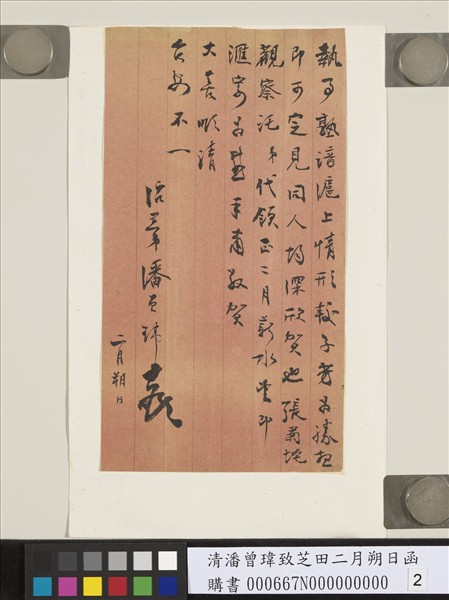 執事熟諳滬上情形較子芳為勝想
即可定見同人均深欣賀也張菊垞
觀察託弟代領正二月薪水望即
滙寄為荷手肅敬賀
大喜順請
台安不一
治弟潘曾瑋
二月朔日
清潘曾瑋致芝田二月朔日函
購書 000667N000000000
2